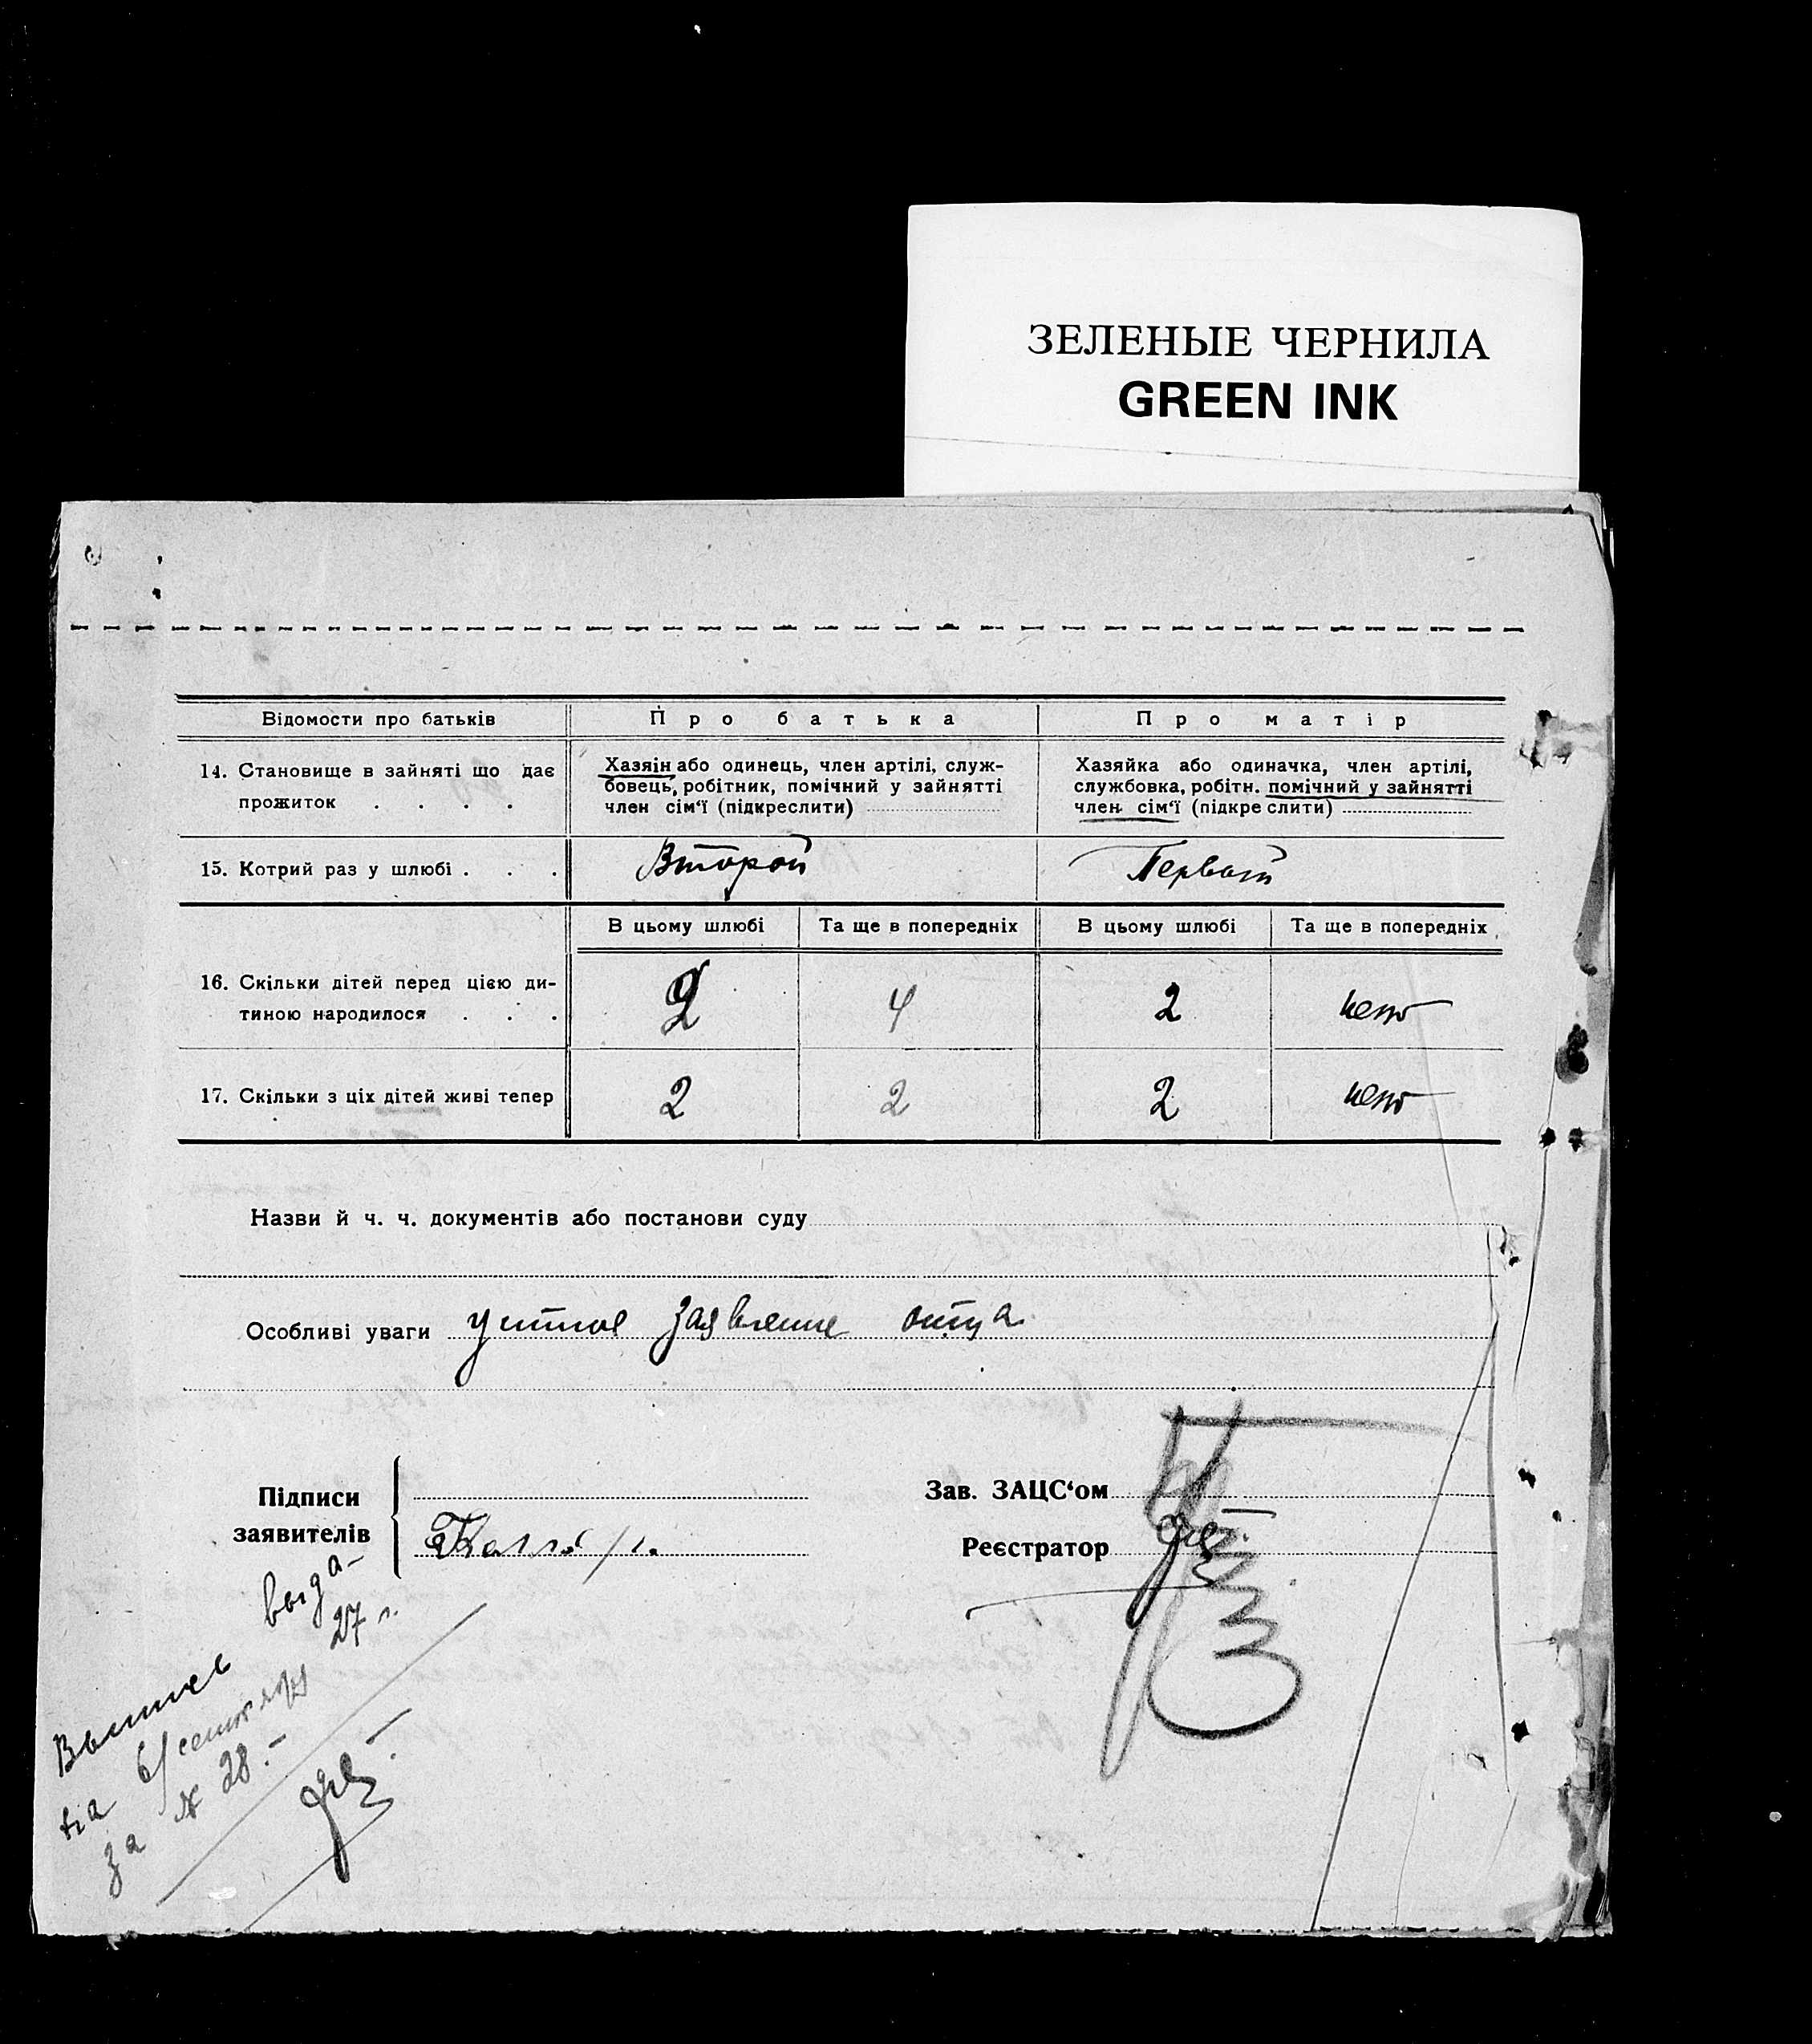 ЗЕЛЕНЫЕ ЧЕРНИЛА
GREEN INK
Відомости про батьків
Про батька
Про матір
14. Становище в зайняті що дає
прожиток . . . .
Хазяін або одинець, член артілі, служ-
бовець, робітник, помічний у зайнятті
член сім‘ї (підкреслити)
Хазяйка або одиначка, член артілі,
службовка, робітн. помічний у зайнятті
член сім‘ї (підкреслити)
15. Котрий раз у шлюбі . . .
Второй
Первый
В цьому шлюбі
Та ще в попередніх
В цьому шлюбі
Та ще в попередніх
16. Скільки дітей перед цією ди-
тиною народилося . . .
2
4
2
нет
17. Скільки з ціх дітей живі тепер
2
2
2
нет
Назви й ч. ч. документів або постанови суду
Особливі уваги устное заявление отца
Підписи
заявителів
Зав. ЗАЦС‘ом
Реєстратор
Выпись выда-
на 6/сентября 27 г.
за № 28.-